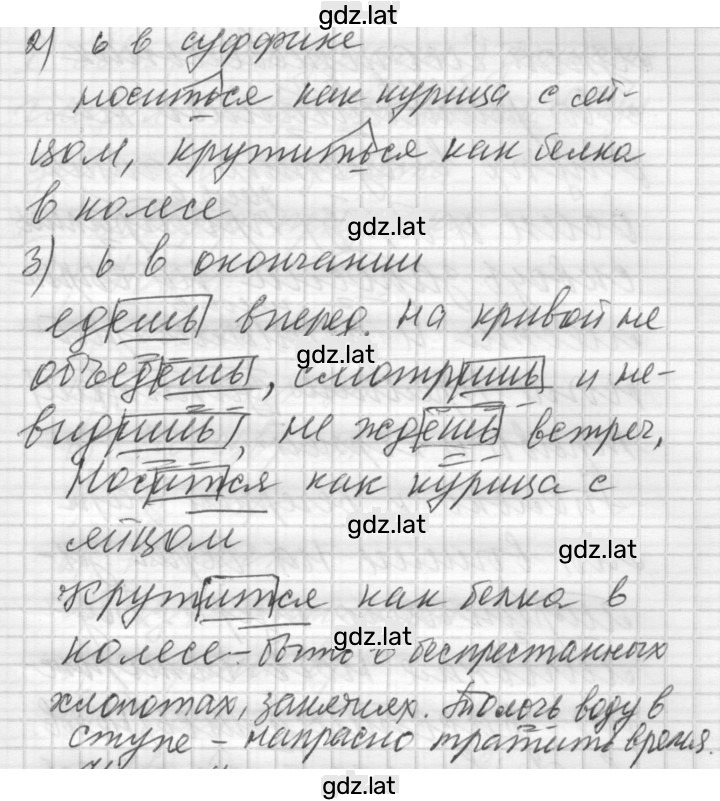 gdz.lat
2) ь в суффике
носиться как курица с яй-
цом, крутиться как белка
в колесе
gdz.lat
3) ь в окончании
едешь вперед. На кривой не
gdz.lat
объедешь, смотришь и не-
видишь, не ждешь встреч,
носится как курица с
gdz.lat
яйцом
gdz.lat
крутится как белка в
gdz.lat
колесе - быть в беспрестанных
хлопотах, занятиях. Толочь воду в
ступе - напрасно тратить время.
gdz.lat